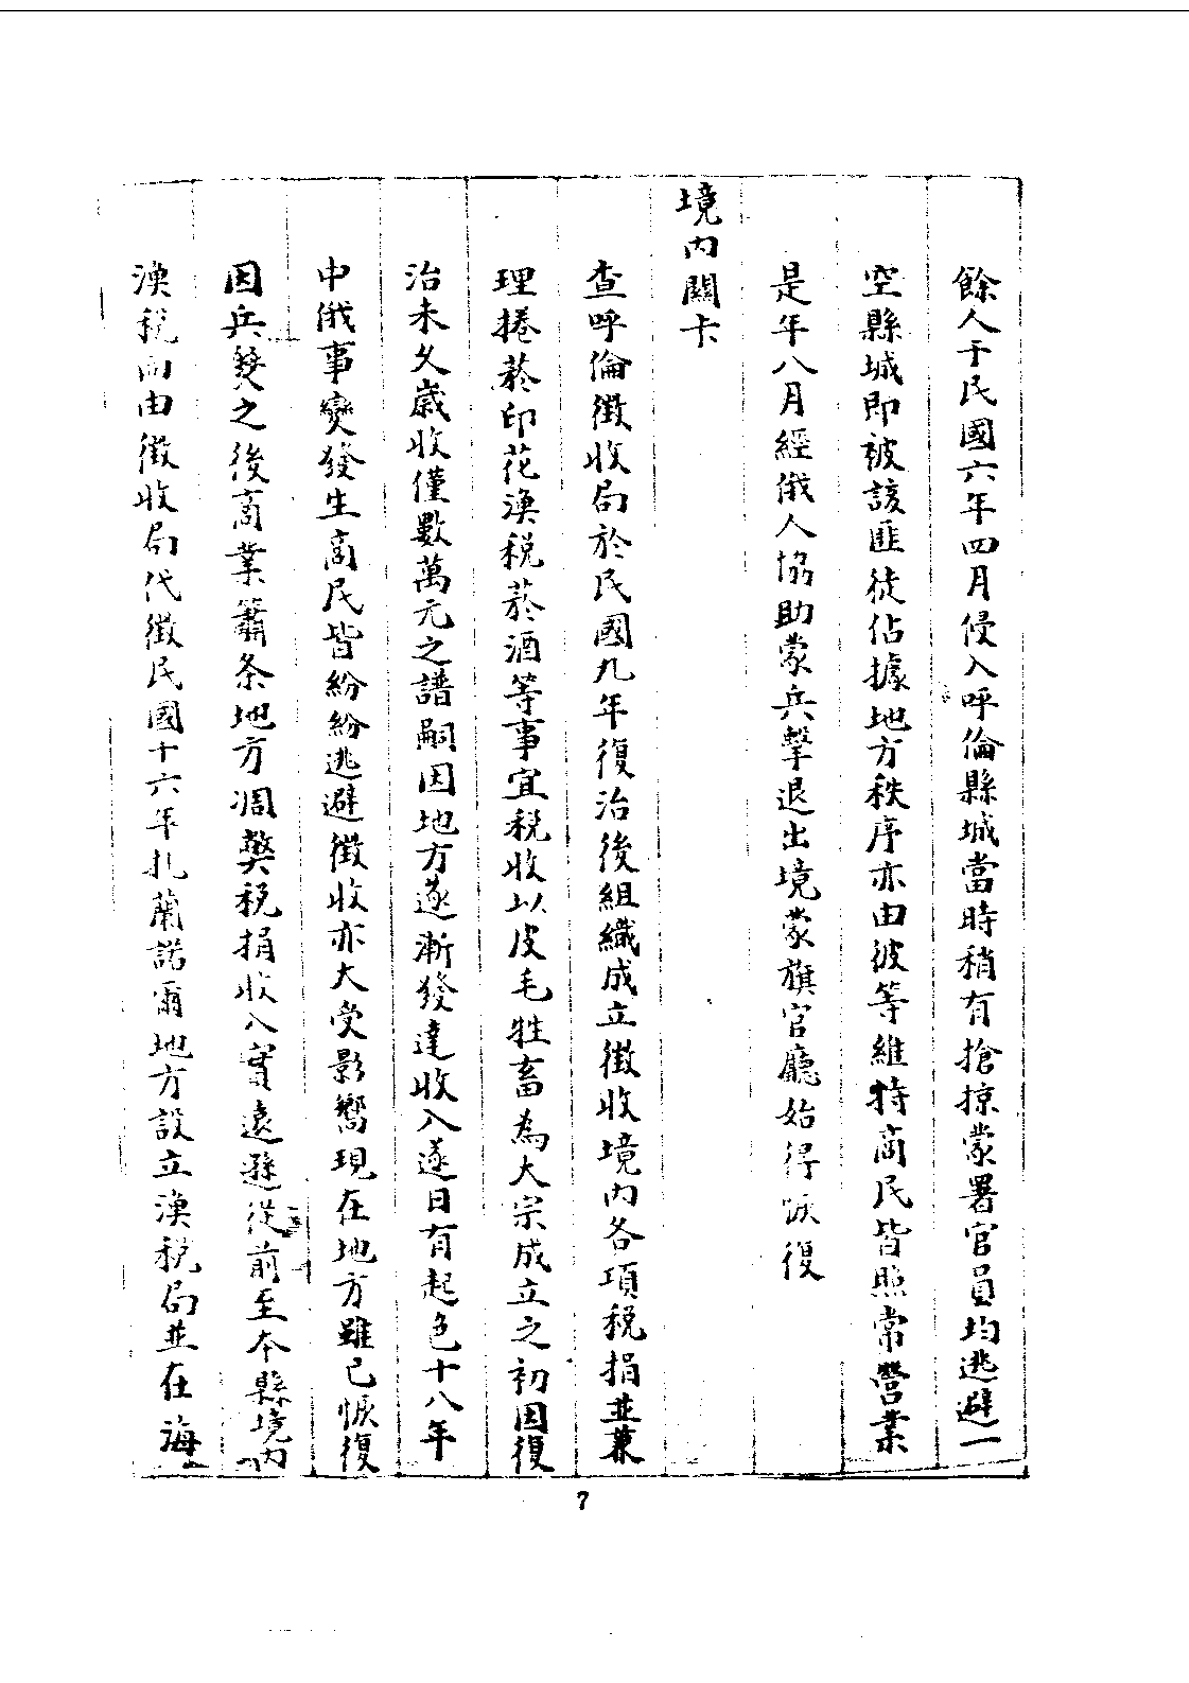 餘人于民國六年四月侵入呼倫縣城當時稍有搶掠蒙署官員均逃避一
空縣城即被該匪徒佔據地方秩序亦由彼等維持商民皆照常營業
是年八月經俄人協助蒙兵擊退出境蒙旗官廳始得恢復
境內關卡
查呼倫徵收局於民國九年復治後組織成立徵收境內各項稅捐並兼
理捲菸印花漁稅菸酒等事宜稅收以皮毛牲畜為大宗成立之初因復
治未久歲收僅數萬元之譜嗣因地方逐漸發達收入逐日有起色十八年
中俄事變發生商民皆紛紛逃避徵收亦大受影響現在地方雖已恢復
因兵燹之後商業蕭条地方凋獘税捐收入實遠遜從前至本縣境內
漁税向由徵收局代徵民國十六年扎蘭諾爾地方設立漁税局並在海
7